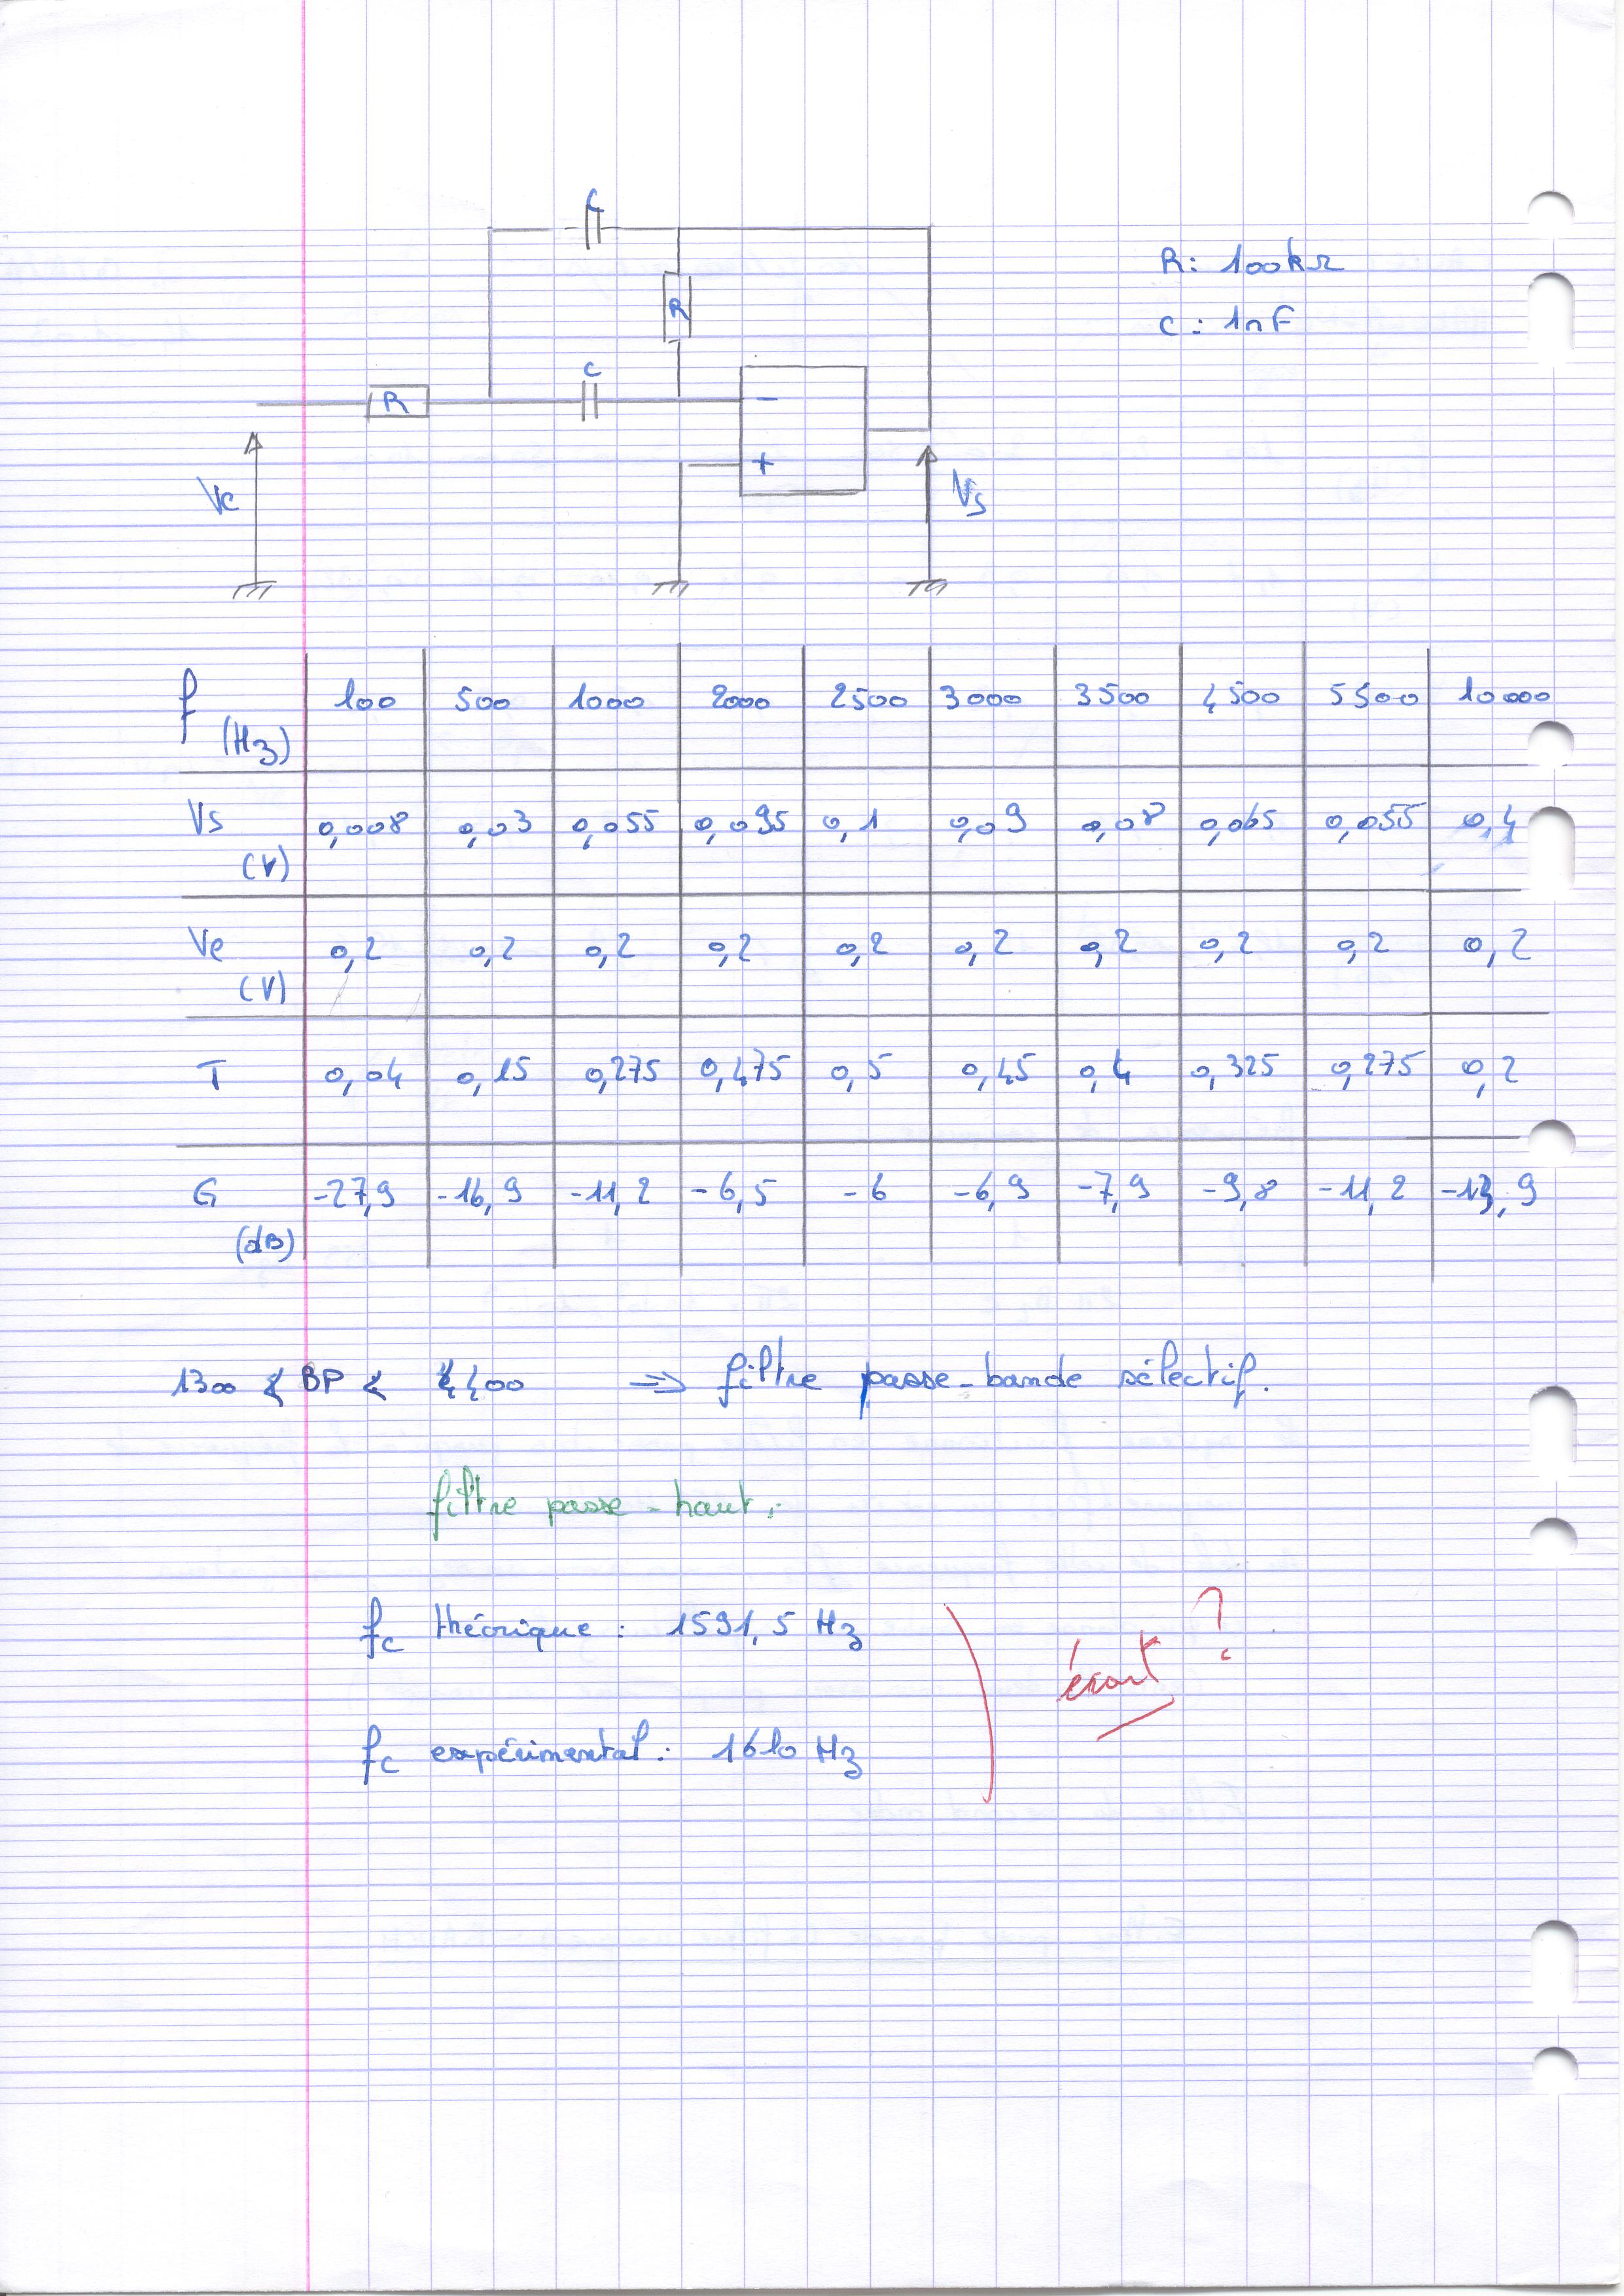 C
R: 100kΩ
R
C: 1nF
C
R
-
+
Ve
Vs
f (Hz) 100 500 1000 2000 2500 3000 3500 4500 5500 10000
Vs (V) 0,008 0,03 0,055 0,095 0,1 0,09 0,08 0,065 0,055 0,4
Ve (V) 0,2 0,2 0,2 0,2 0,2 0,2 0,2 0,2 0,2 0,2
T 0,04 0,15 0,275 0,475 0,5 0,45 0,4 0,325 0,275 0,2
G (dB) -27,9 -16,9 -11,2 -6,5 -6 -6,9 -7,9 -9,8 -11,2 -13,9
1300 < BP < 4400 => filtre passe-bande sélectif.
filtre passe-haut.
fc théorique : 1591,5 Hz
écart ?
fc expérimental : 1610 Hz